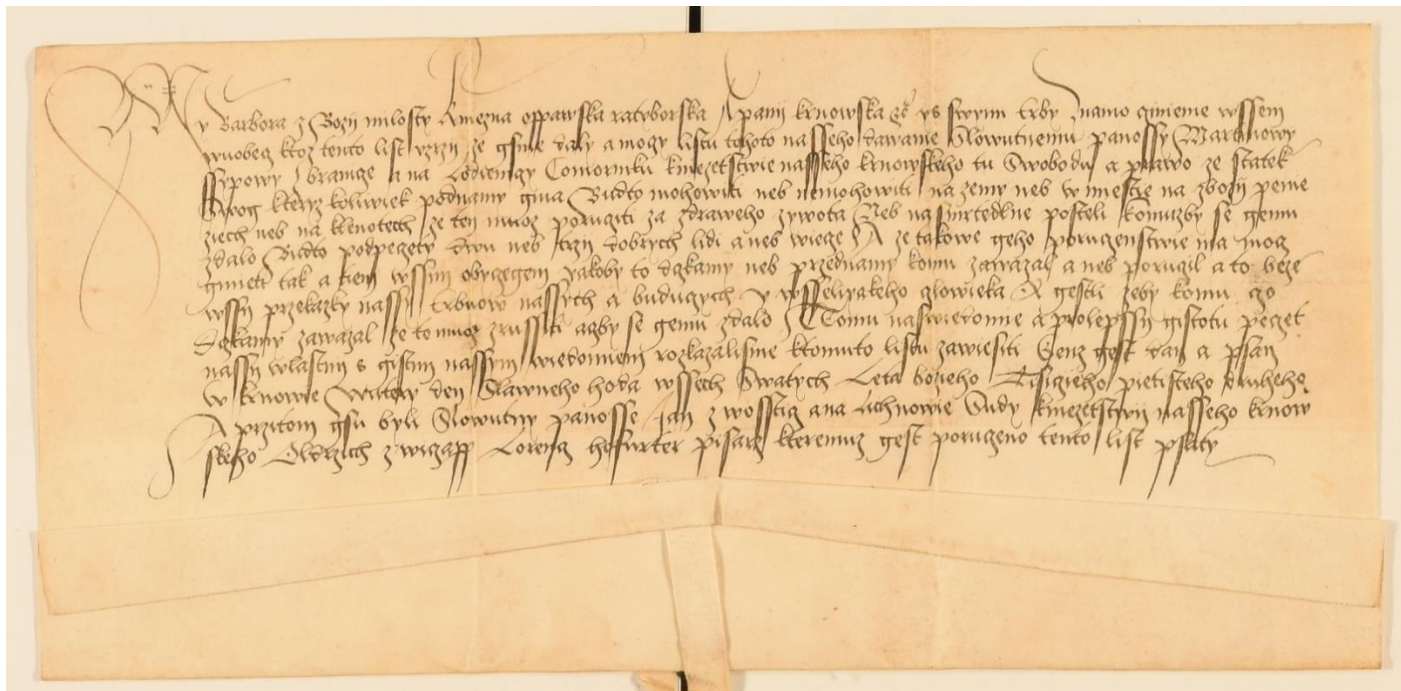 My Barbora z Bozy milosty Kniezna oppawska ratyborska A panij krnowska etc ys swymi erby Znamo ginieme wssem
wuobecz ktoz tento list vzrzy ze gsme daly a moczy listu tohoto nasseho dawame Slowutnemu panossy Martinowy
Ssypowy z bramcze a na Lodieniczy Comorniku kniezetstwie nasseho krnowskeho tu Swobodu a prawo ze statek
Swog kteryz koliwiek podnamy gma Budto mohowiti neb nemohowiti na zemy neb w miestie na zbozy penie
ziech neb na klenotech ze ten muoz porucziti za zdraweho zywota Neb na smrtedlne posteli komuzby se gemu
zdalo Budto podpeczety dwu neb trzy dobrych lidi aneb wiecze A ze takowe geho poruczenstwie ma mocz
gmieti tak a tiem wssim obyczegem yakoby to dczkamy neb przednamy komu zawazal a neb poruczil a to beze
wssy przekazky nassy erbuow nassych a buduczych y wsselyakeho czlowieka A gestli zeby komu czo
Dczkamy zawazal ze to muoz zrussiti aczby se gemu zdalo Tomu naswiedomie a prolepssy gistotu peczet
nassy wlastny s gistim nassym wiedomiem rozkazalisme ktomuto listu zawiesiti Genz gest dan a psan
W krnowie W utery den Slawneho hoda wssech Swatych Leta bozieho Tisiczieho pietisteho druheho
A przitom gsu byli Slowutny panosse Jan z wossticz ana Lichnowie Sudy kniezetstwij nasseho krnow
skeho Oldrzich z wiczapp Lorencz hofurter pisarz kteremuz gest poruczeno tento list psaty